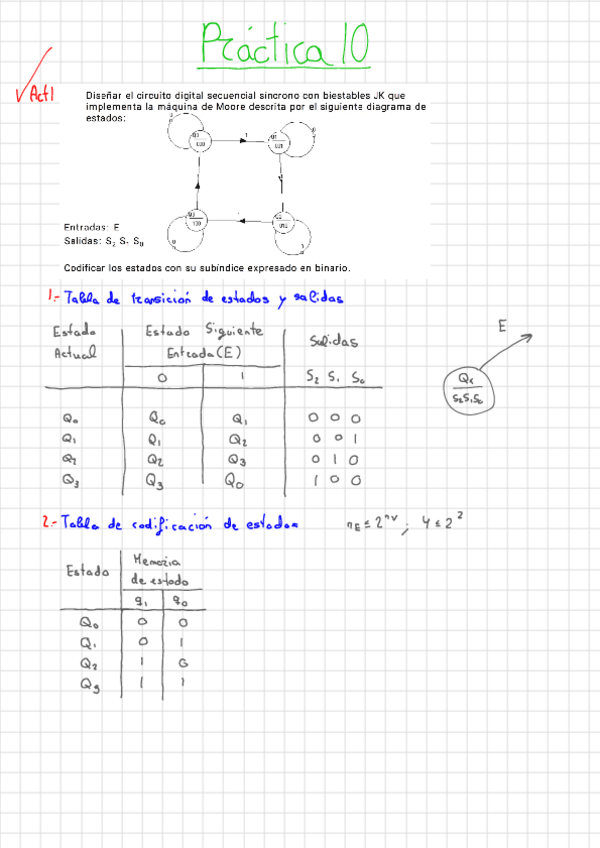 Práctica 10
Act1
Diseñar el circuito digital secuencial síncrono con biestables JK que
implementa la máquina de Moore descrita por el siguiente diagrama de
estados:
1
Entradas: E
Salidas: S₂ S₁ S₀
Codificar los estados con su subíndice expresado en binario.
1.- Tabla de transición de estados y salidas
Estado Actual
Estado Siguiente
Entrada (E)
Salidas
0 1 S₂ S₁ S₀
Q₀ Q₀ Q₁ 0 0 0
Q₁ Q₁ Q₂ 0 0 1
Q₂ Q₂ Q₃ 0 1 0
Q₃ Q₃ Q₀ 1 0 0
E
S₂S₁S₀
2.- Tabla de codificación de estados
4 ≤ 2²
Estado
Memoria
de estado
q₁ q₀
Q₀ 0 0
Q₁ 0 1
Q₂ 1 0
Q₃ 1 1